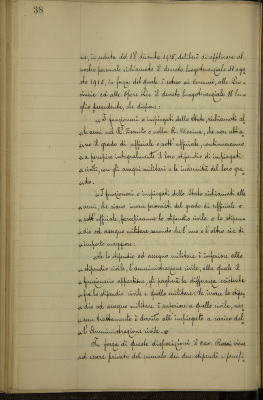 38
sio, in seduta del 18 dicembre 1915, deliberò di applicare al
nostro personale richiamato il decreto luogotenenziale 31 ago
sto 1915, in forza del quale è esteso ai Comuni, alle Pro
vincie ed alle Opere Pie il decreto luogotenenziale 18 lu
glio precedente, che dispone:
"I funzionari e impiegati dello Stato, richiamati al
le armi nel R. Esercito o nella R. Marina, che non abbia
no il grado di ufficiale o sott' ufficiale, continueranno
a percepire integralmente il loro stipendio di impiegati
civili, con gli assegni militari e le indennità del loro gra
do.
"I funzionari e impiegati dello Stato richiamati alle
armi, che siano invece provvisti del grado di ufficiale o
sott' ufficiale, percepiranno lo stipendio civile o lo stipen
dio ed assegno militare secondo che l' uno o l' altro sia di
importo maggiore.
"Se lo stipendio ed assegno militare è inferiore allo
stipendio civile, l' amministrazione civile, alla quale il
funzionario appartiene, gli pagherà la differenza esistente
fra lo stipendio civile e quello militare. Se invece lo stipen
dio ed assegno militare è superiore a quello civile, nes
sun trattamento è dovuto all' impiegato a carico del
l' Amministrazione civile."
In forza di queste disposizioni il cav. Rossi viene
ad essere privato del cumulo dei due stipendi e